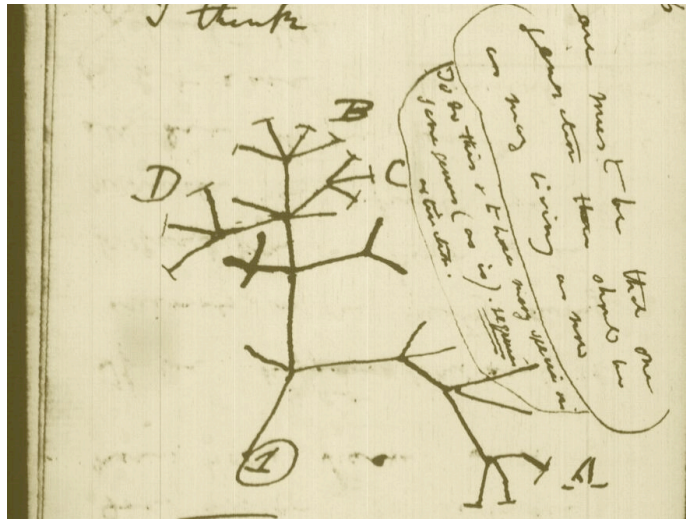 I think
must be that one
generation then should be
as many living as now
To do this & to have many species in
same genus (as is). requires
extinction.
B
D
C
A
1